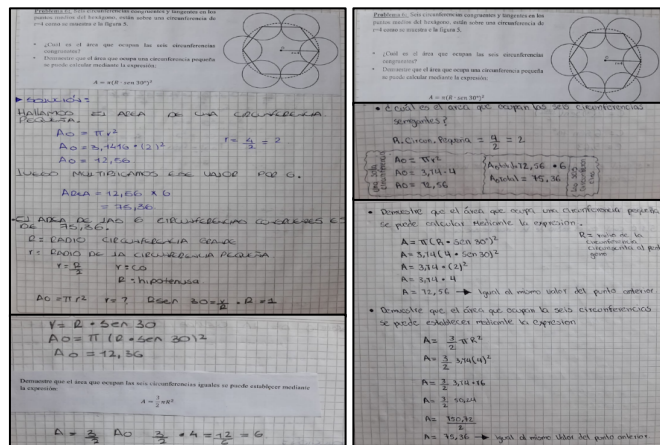 Problema 6. Seis circunferencias congruentes y tangentes en los
puntos medios del hexágono, están sobre una circunferencia de
r=4 como se muestra e la figura 5.
¿Cuál es el área que ocupan las seis circunferencias
congruentes?
Demuestre que el área que ocupa una circunferencia pequeña
se puede calcular mediante la expresión:
A = π(R · sen 30°)²
SOLUCIÓN:
HALLAMOS EL AREA DE UNA CIRCUNFERENCIA
PEQUEÑA.
Ao = π r²
r = 4/2 = 2
Ao = 3,1416 · (2)²
Ao = 12,56
LUEGO MULTIPLICAMOS ESE VALOR POR 6.
AREA = 12,56 x 6
= 75,36
EL AREA DE LAS 6 CIRCUNFERENCIAS ES
DE 75,36.
R = RADIO CIRCUNFERENCIA GRANDE
r = RADIO DE LA CIRCUNFERENCIA PEQUEÑA
r = R/2 r = CO
R = hipotenusa
Ao = π r² r = ?
r = R • sen 30
Ao = π (R • sen 30)²
Ao = 12,36
Demuestre que el área que ocupan las seis circunferencias iguales se puede establecer mediante
la expresión:
A = 3/2 πR²
Problema 6. Seis circunferencias congruentes y tangentes en los
puntos medios del hexágono, están sobre una circunferencia de
r=4 como se muestra e la figura 5.
¿Cuál es el área que ocupan las seis circunferencias
congruentes?
Demuestre que el área que ocupa una circunferencia pequeña
se puede calcular mediante la expresión:
A = π(R · sen 30°)²
¿cuál es el area que ocupan las seis circunferencias
R. Circun. Pequeña = 4/2 = 2.
Ao = πr²
Ao = 3,14 · 4
Ao = 12,56
A total = 12,56 • 6
A total = 75,36
Demuestre que el área que ocupa una circunferencia pequeña
se puede calcular mediante la expresión.
A = π (R · Sen 30°)²
A = 3,14 (4 • Sen 30)²
A = 3,14 • (2)²
A = 3,14 • 4
A = 12,56 → Igual al mismo valor del punto anterior
R = radio de la
circunferencia
Demuestre que el área que ocupan la seis circunferencias
se puede establecer mediante la expresión
A = 3/2 π R²
A = 3/2 3,14(4)²
A = 3/2 3,14 • 16
A = 3/2 50,24
A = 150,72/2
A = 75,36 → Igual al mismo Valor del punto anterior.